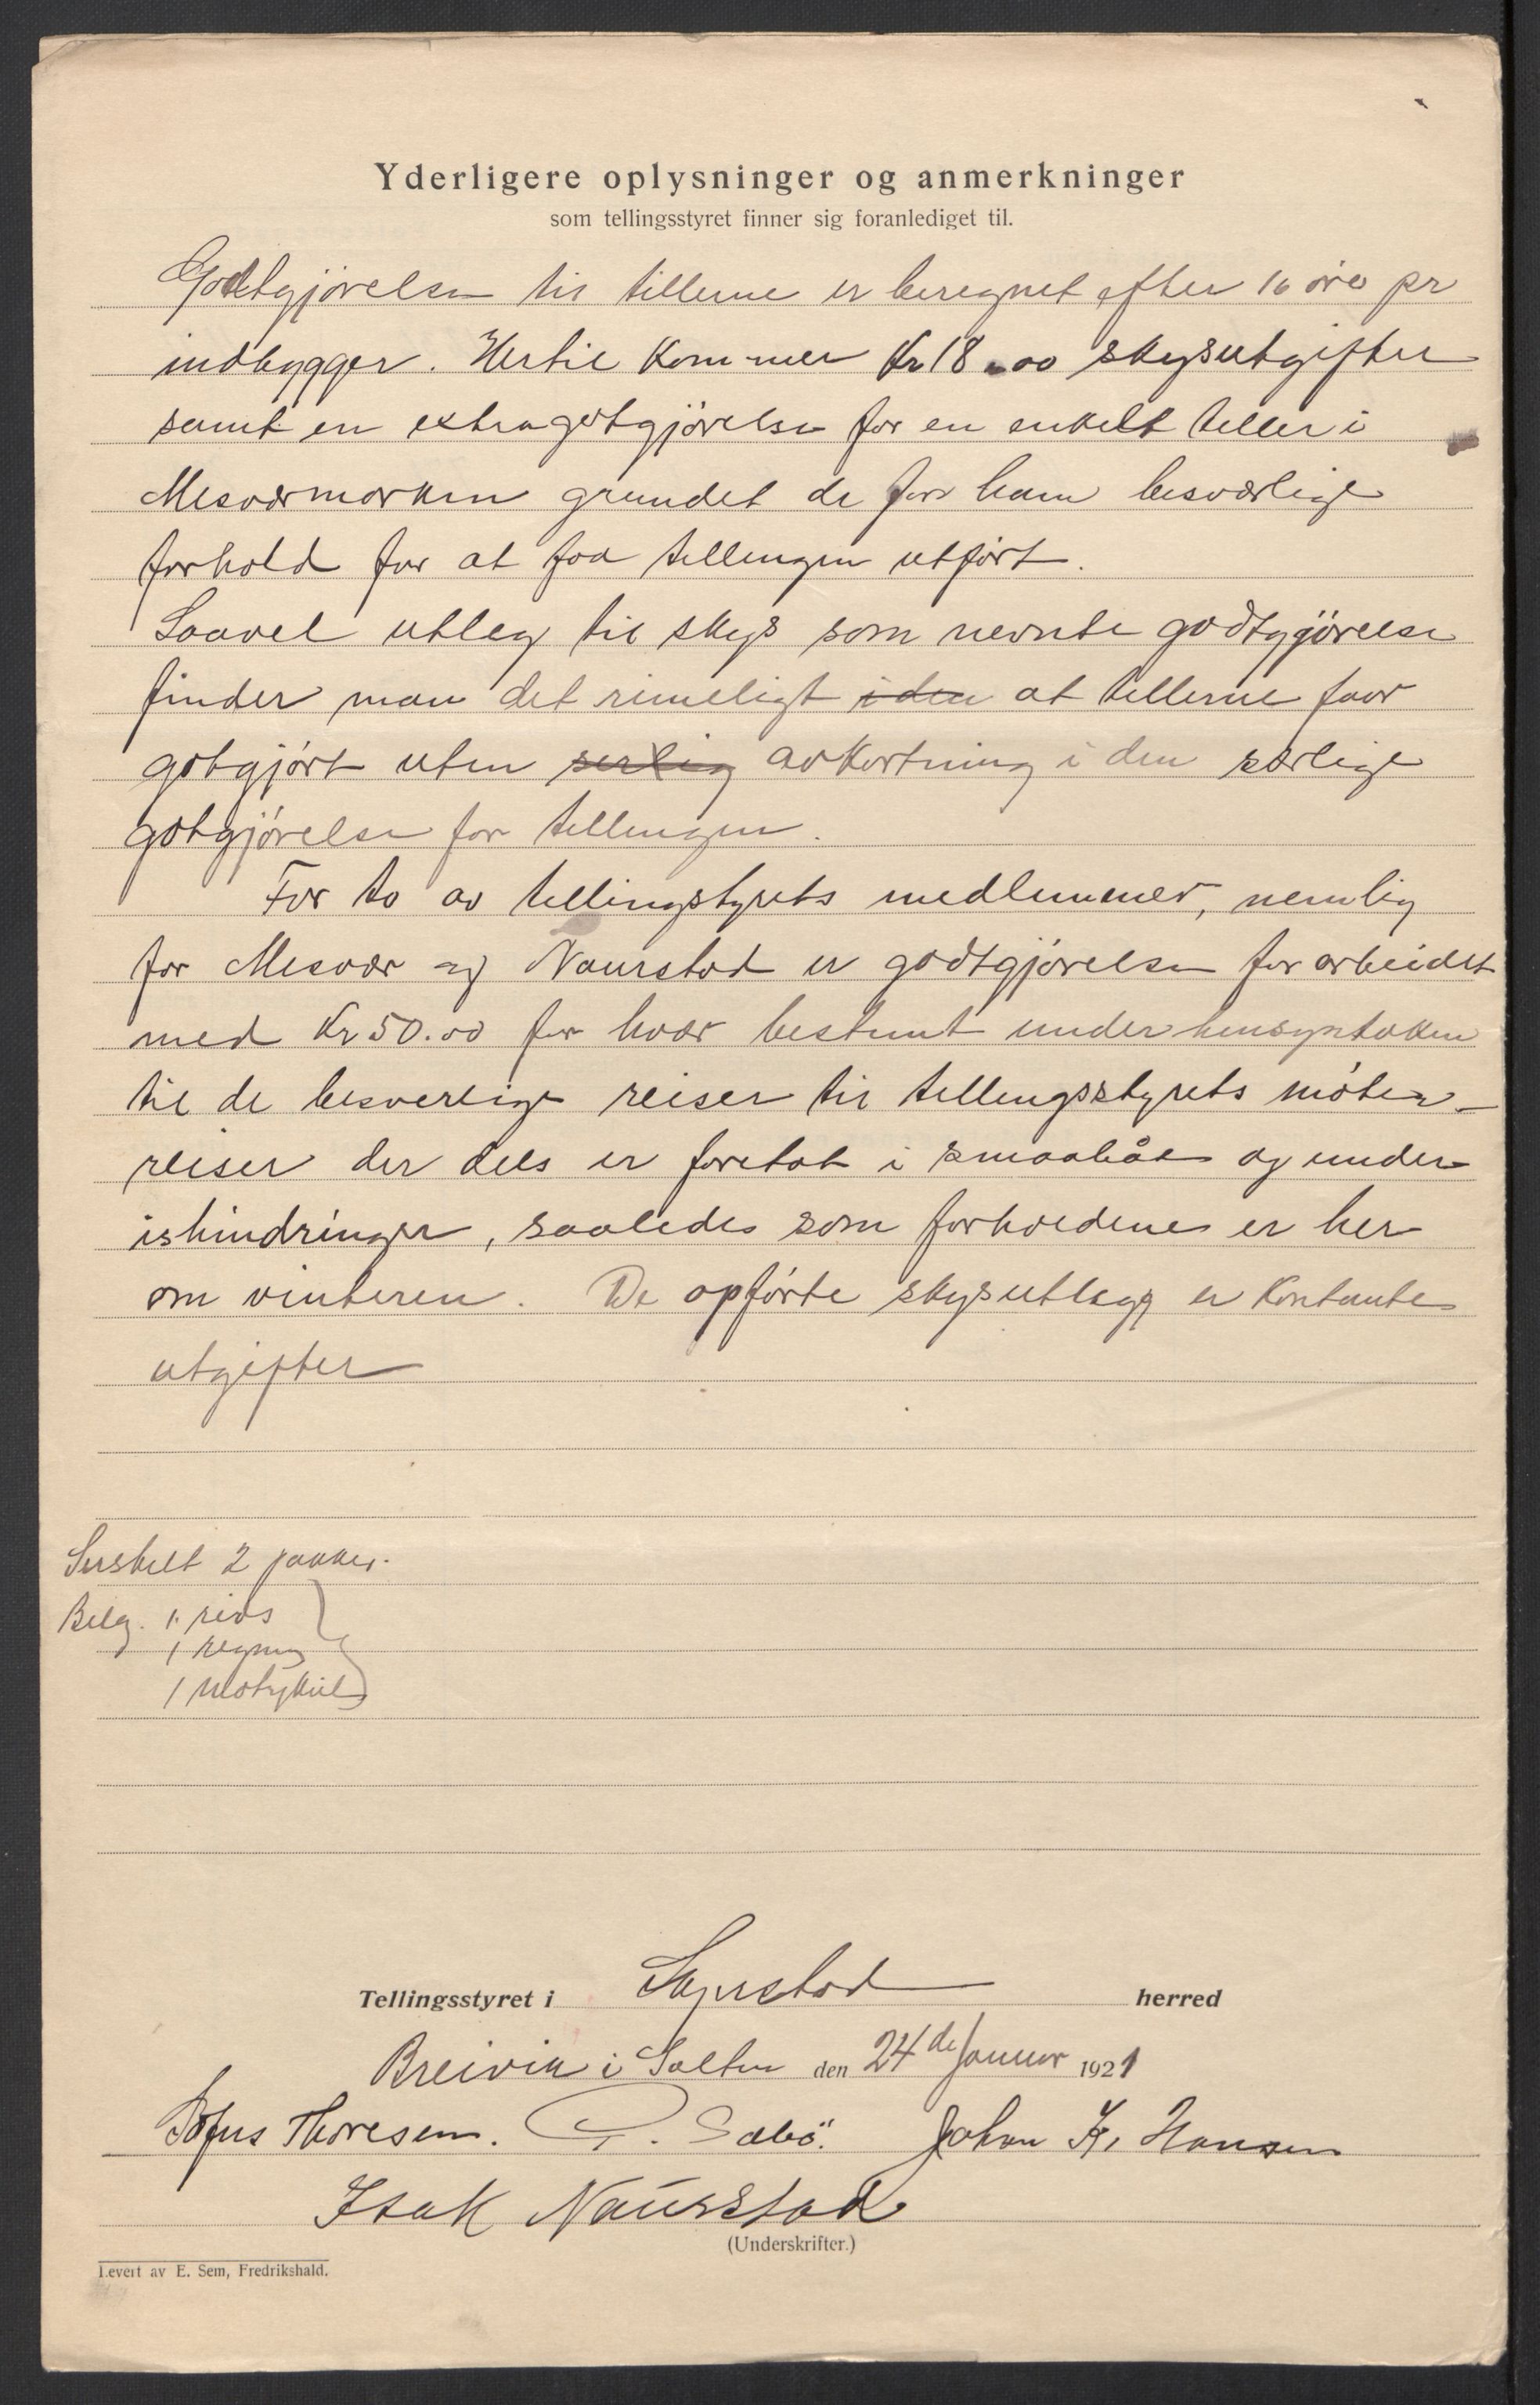 Yderligere oplysninger og anmerkninger
som tellingsstyret finner sig foranlediget til.
Godtgjörelse til tellerne er beregnet efter 16 öre pr
indbygger. Hertil kommer Kr 18.00 skysutgifter
samt en extragotgjörelse for en enkelt teller i
Misværmarken grundet de for ham besværlige
forhold for at faa tellingen utfört.
Saavel utleg til skys som nevnte godtgjörelse
finder man det rimeligt i den at tellerne faar
gotgjört uten serlig avkortning i den særlige
gotgjörelse for tellingen.
For to av tellingstyrets medlemmer, nemlig
for Misvær og Naurstad er godtgjörelse for arbeidet
med Kr 50.00 for hver bestemt under hensyntaken
til de besverlige reiser til tellingsstyrets möter –
reiser der dels er foretat i smaabåt og under
ishindringer, saaledes som forholdene er her
om vinteren. De opförte skysutlegg er kontante
utgifter
Serskilt 2 pakker.
Bilag. 1. rids
1 regning
1
Tellingsstyret i Skjerstad herred
Breivik i Salten den 24de Januar 1921
Sofus Thoresen. P. Sæbö. Johan K. Hansen
Isak Naurstad
(Underskrifter.)
Levert av E. Sem, Fredrikshald.